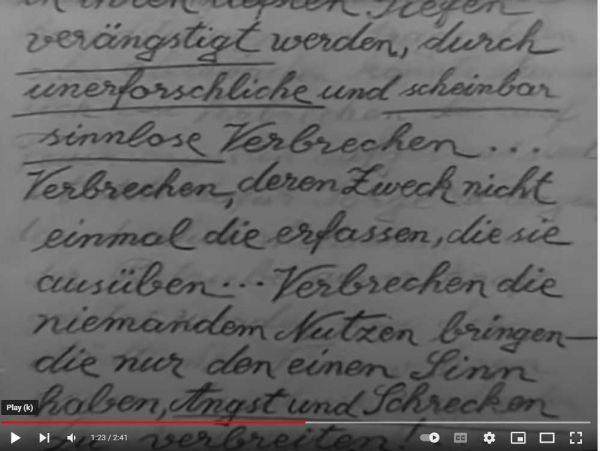 in ihren tiefsten Tiefen
verängstigt werden, durch
unerforschliche und scheinbar
sinnlose Verbrechen...
Verbrechen, deren Zweck nicht
einmal die erfassen, die sie
ausüben... Verbrechen die
niemandem Nutzen bringen—
die nur den einen Sinn
haben, Angst und Schrecken
Play (k)
zu verbreiten!
1:23 / 2:41